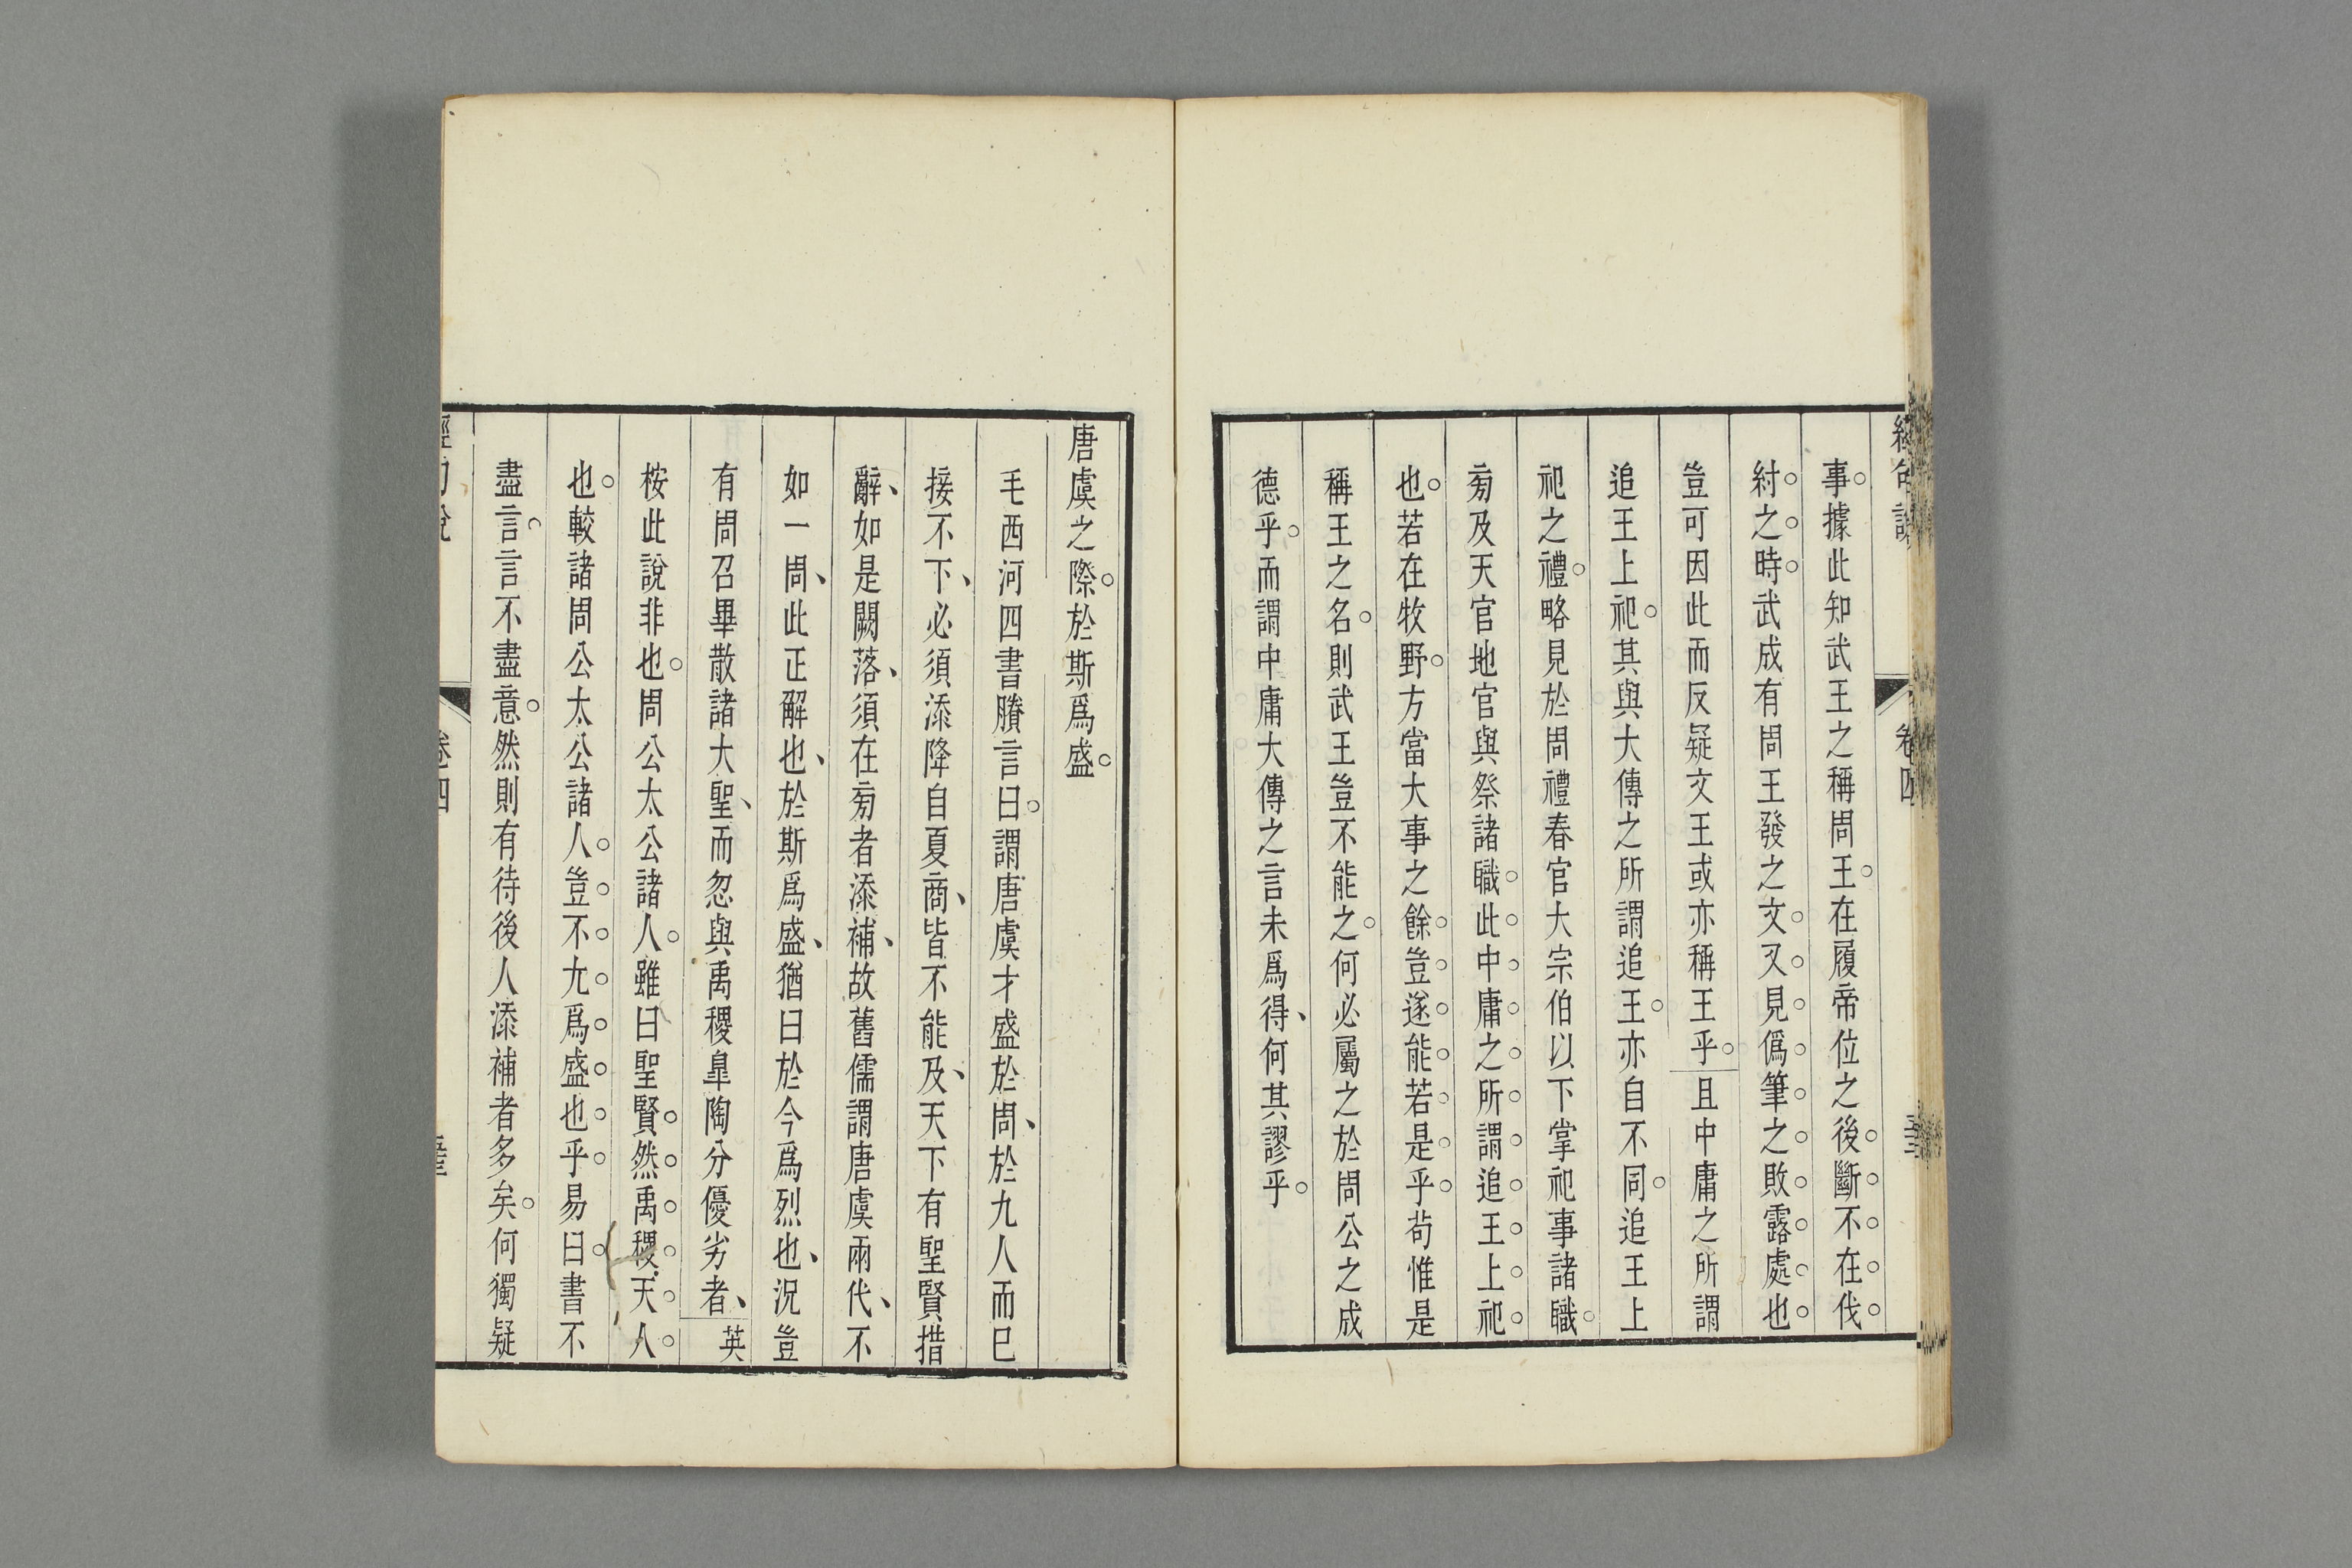 經句說
卷四
事據此知武王之稱周王在履帝位之後斷不在伐
紂之時武成有周王發之文又見僞筆之敗露處也
豈可因此而反疑文王或亦稱王乎且中庸之所謂
追王上祀其與大傳之所謂追王亦自不同追王上
祀之禮略見於周禮春官大宗伯以下掌祀事諸職
㫄及天官地官與祭諸職此中庸之所謂追王上祀
也若在牧野方當大事之餘豈遂能若是乎苟惟是
稱王之名則武王豈不能之何必屬之於周公之成
德乎而謂中庸大傳之言未爲得何其謬乎
唐虞之際於斯爲盛
毛西河四書賸言曰謂唐虞才盛於周於九人而已
接不下必須添降自夏商皆不能及天下有聖賢措
辭如是闕落須在㫄者添補故舊儒謂唐虞兩代不
如一周此正解也於斯爲盛猶曰於今爲烈也況豈
有周召畢散諸大聖而忽與禹稷臯陶分優劣者英
桉此說非也周公太公諸人雖曰聖賢然禹稷天人
也較諸周公太公諸人豈不尤爲盛也乎易曰書不
盡言言不盡意然則有待後人添補者多矣何獨疑
經句說
卷四